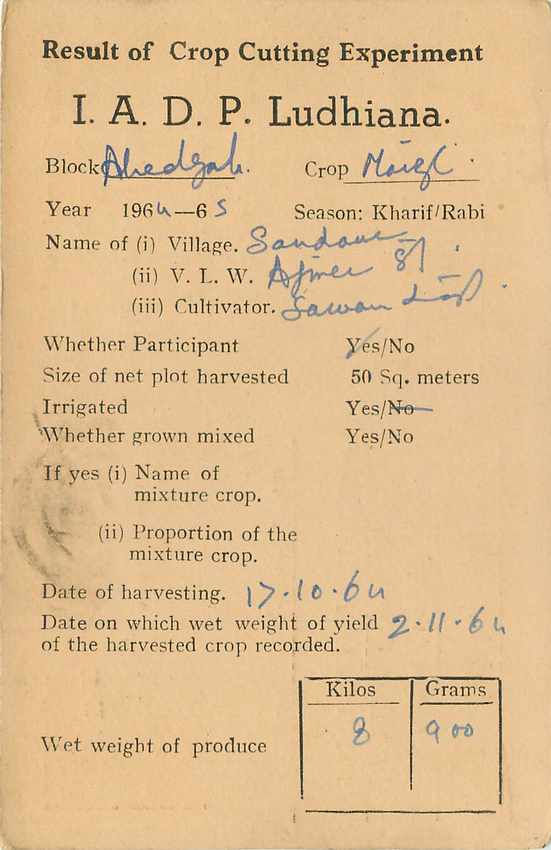 Result of Crop Cutting Experiment
I. A. D. P. Ludhiana.
Block Ahedgah. Crop Maize
Year 1964—65 Season: Kharif/Rabi
Name of (i) Village.
(ii) V. L. W. Ajmer
(iii) Cultivator. Sawan
Whether Participant Yes/No
Size of net plot harvested 50 Sq. meters
Irrigated Yes/No
Whether grown mixed Yes/No
If yes (i) Name of
mixture crop.
(ii) Proportion of the
mixture crop.
Date of harvesting. 17.10.64
Date on which wet weight of yield 2.11.64
of the harvested crop recorded.
Kilos Grams
Wet weight of produce 8 900